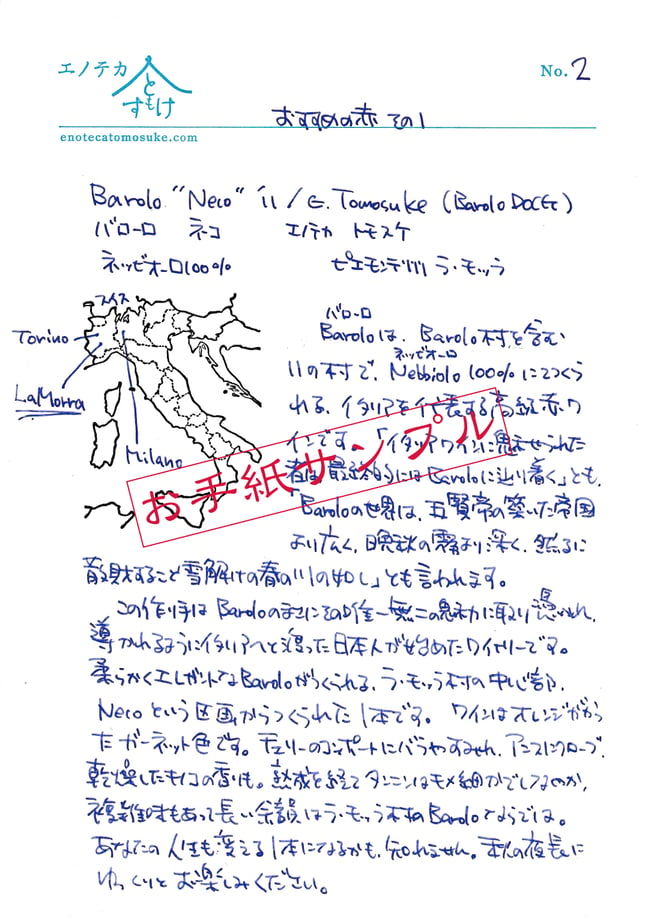 エノテカ
と
すもけ
No. 2
おすすめの赤 その1
enotecatomosuke.com
Barolo "Neco" '11 / E. Tomosuke (Barolo DOCG)
バローロ ネコ エノテカ トモスケ
ネッビオーロ100% ピエモンテ州 ラ・モッラ
スイス
Torino
LaMorra
Milano
バローロ
Baroloは、Barolo村を含む
11の村で、Nebbiolo 100%にてつくら
ネッビオーロ
れる、イタリアを代表する高級赤ワ
インです。「イタリアワインに魅せられた
者は最終的にはBaroloに辿り着く」とも、
「Baroloの世界は、五賢帝の築いた帝国
より広く、晩秋の霧より深く、然るに
散財すること雪解けの春の川の如し」とも言われます。
この作り手はBaroloのまさにその唯一無二の魅力に取り憑かれ、
導かれるようにイタリアへと渡った日本人が始めたワイナリーです。
柔らかくエレガントなBaroloがつくられる、ラ・モッラ村の中心部、
Necoという区画からつくられた1本です。ワインはオレンジがかっ
たガーネット色です。チェリーのコンポートにバラやすみれ、アニスにクローブ、
乾燥したキノコの香りも。熟成を経てタンニンはキメ細かでしなやか、
複雑味もあって長い余韻はラ・モッラ村のBaroloならでは。
あなたの人生も変える1本になるかも、知れません。秋の夜長に
ゆっくりとお楽しみください。
お手紙サンプル